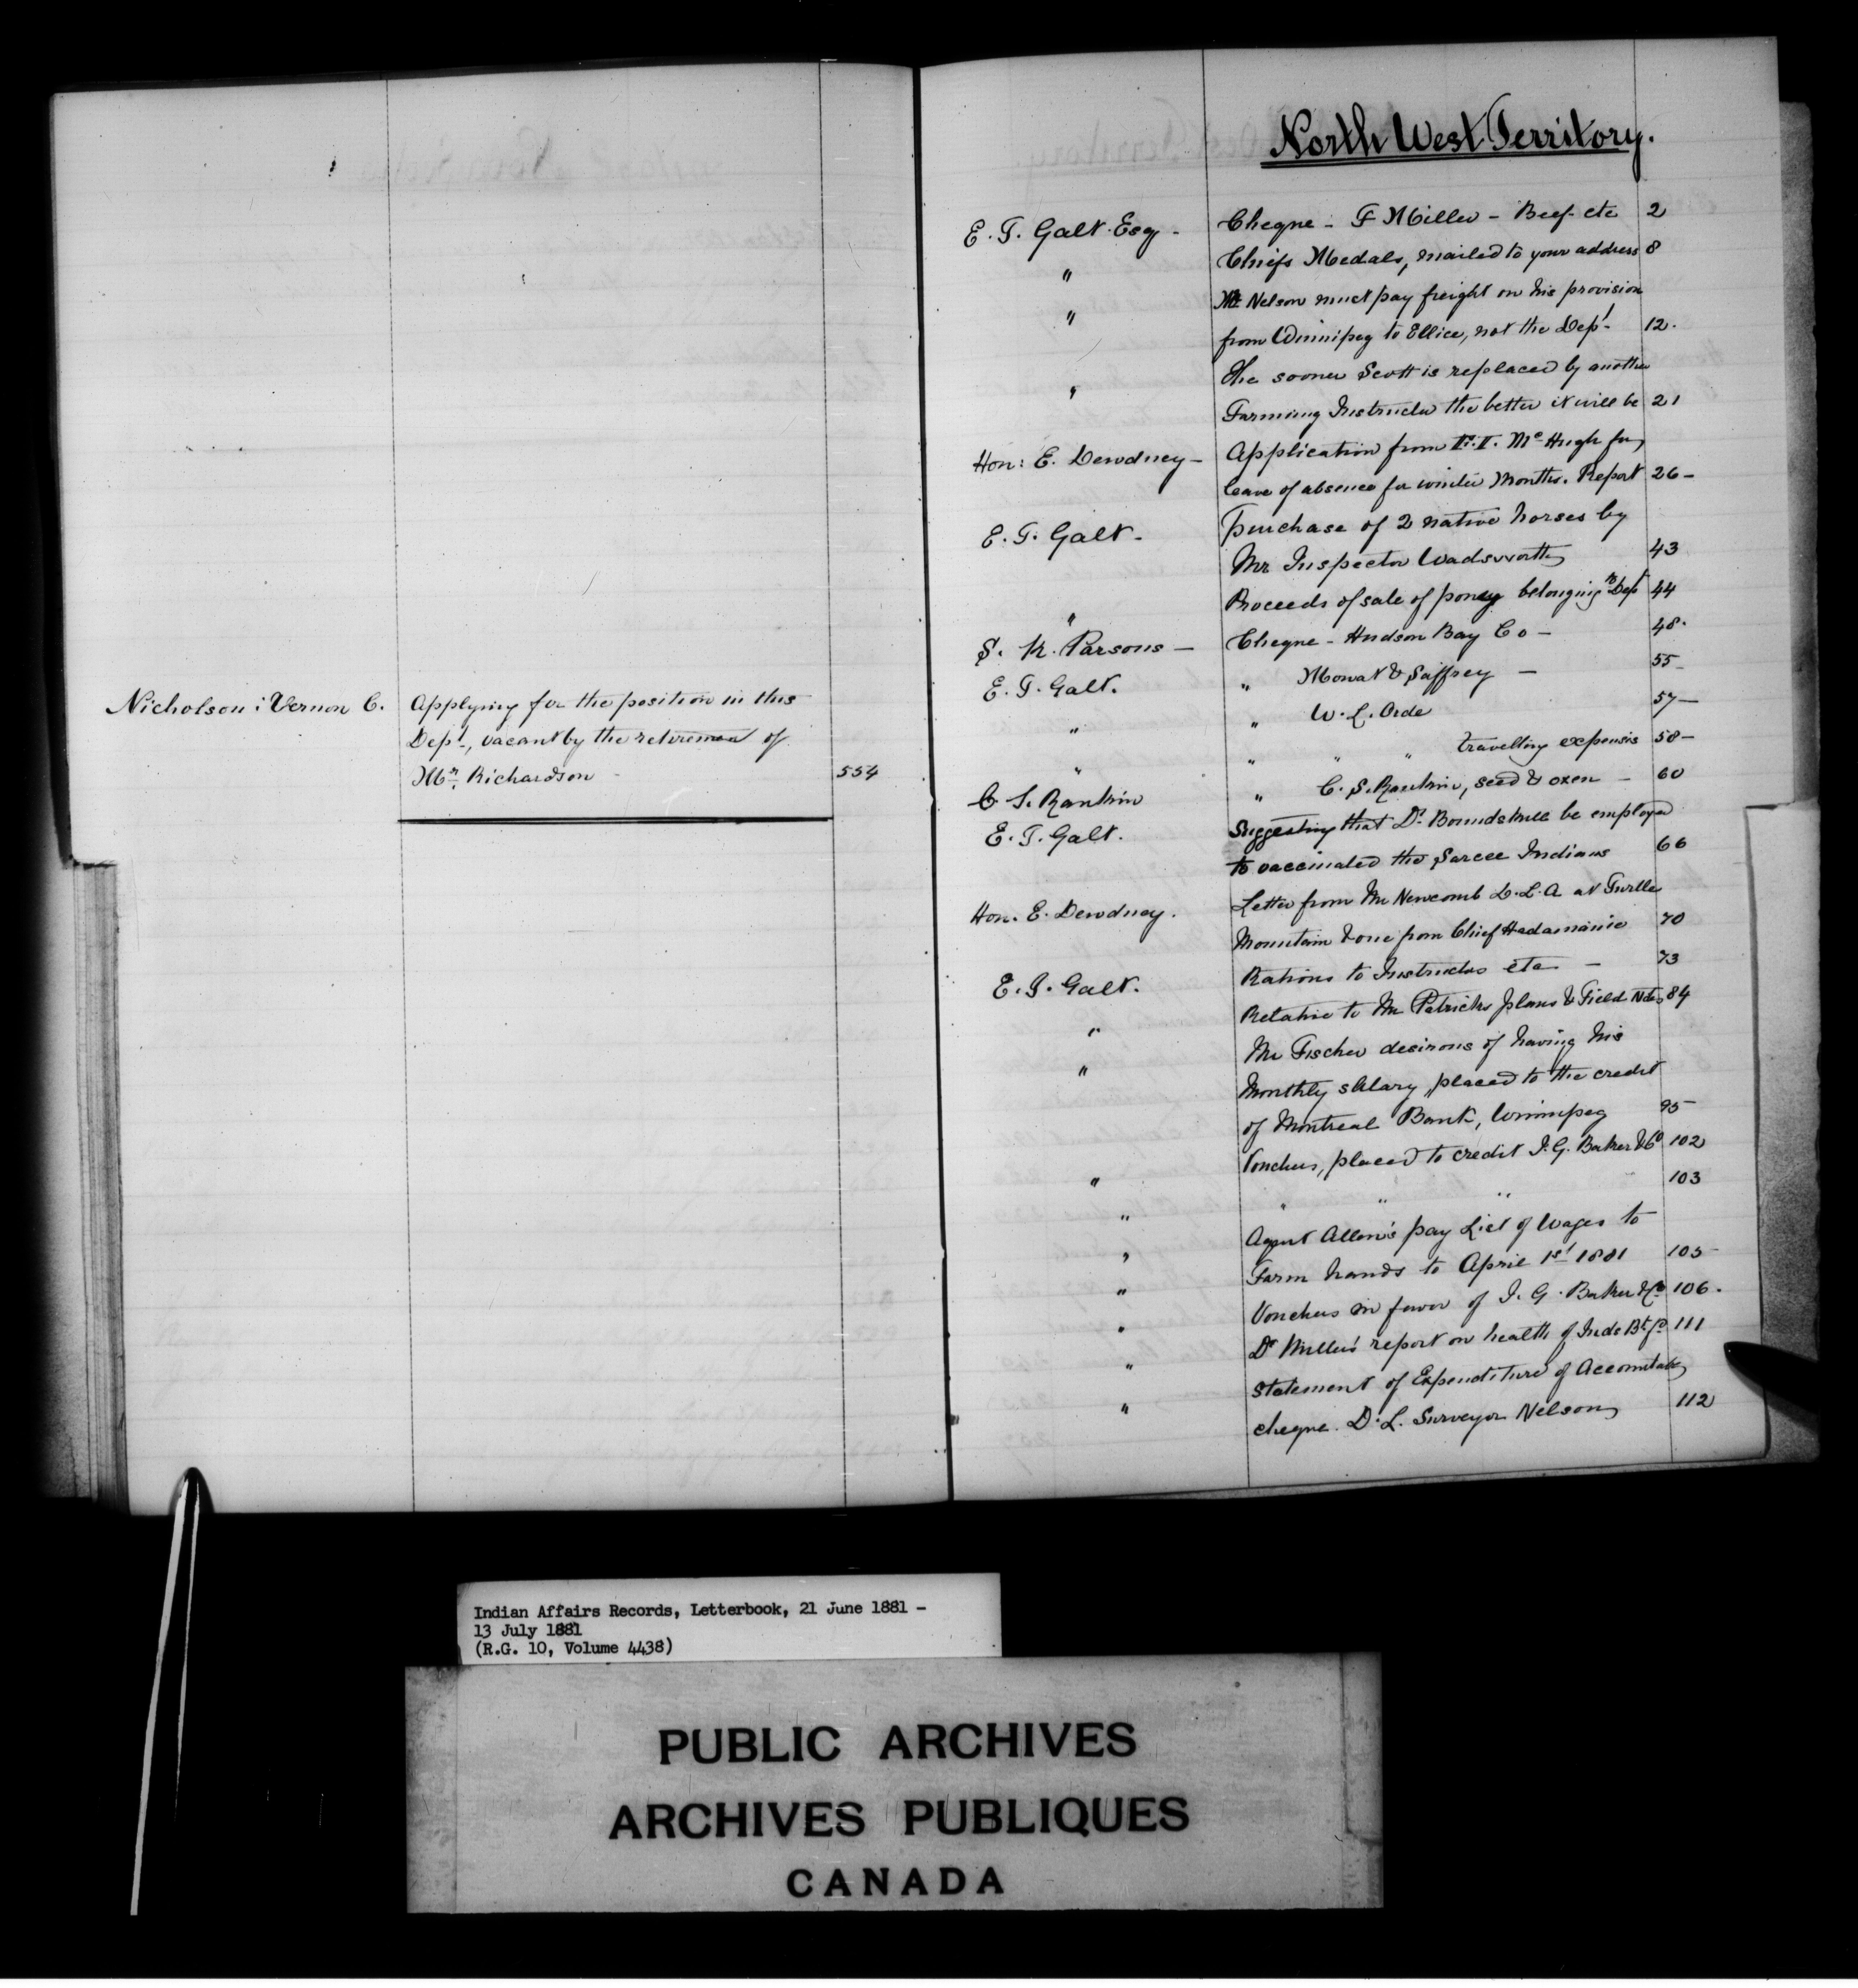 Nicholson : Vernon C. Applying for the position in this
Dept, vacant by the retirement of
Mr. Richardson - 554
North West Territory.
E. T. Galt. Esq - Cheque - F Miller - Beef etc 2
" Chiefs Medals, mailed to your address 8
" Mr Nelson must pay freight on his provision
from Winnipeg to Ellice, not the Dept. 12.
" The sooner Scott is replaced by another
Farming Instructor the better it will be 21
Hon: E. Dewdney - Application from McHugh for
leave of absence for winter months. Report 26 -
E. T. Galt - Purchase of 2 native horses by
Mr Inspector Wadsworth 43
" Proceeds of sale of poney belonging to Dept 44
S. K. Parsons - Cheque - Hudson Bay Co - 48.
E. T. Galt. " Mowat & Saffrey - 55
" " W. L. Orde 57 -
" " " " travelling expenses 58 -
C S. Rankin " C. S. Rankin, seed & oxen - 60
E. T. Galt. Suggesting that Dr. be employed
to vaccinated the Sarcee Indians 66
Hon. E. Dewdney. Letter from Mr Newcomb D.L.A at Turtle
Mountain & one from Chief Hadamanie 70
E. T. Galt. Rations to Instructors etc - 73
" Relative to Mr Patricks plans & Field Notes 84
" Mr Fischer desirous of having his
Monthly salary, placed to the credit
of Montreal Bank, Winnipeg 95
" Vouchers, placed to credit I. G. Baker & Co 102
" " " " 103
" Agent Allen's pay List of Wages to
Farm hands to April 1st 1881 105
" Vouchers in favor of I. G. Baker & Co 106.
" Dr Miller's report on health of Inds Btfd 111
" Statement of Expenditure of Accountable
" cheque. D. L. Surveyor Nelson 112
Indian Affairs Records, Letterbook, 21 June 1881 -
13 July 1881
(R.G. 10, Volume 4438)
PUBLIC ARCHIVES
ARCHIVES PUBLIQUES
CANADA